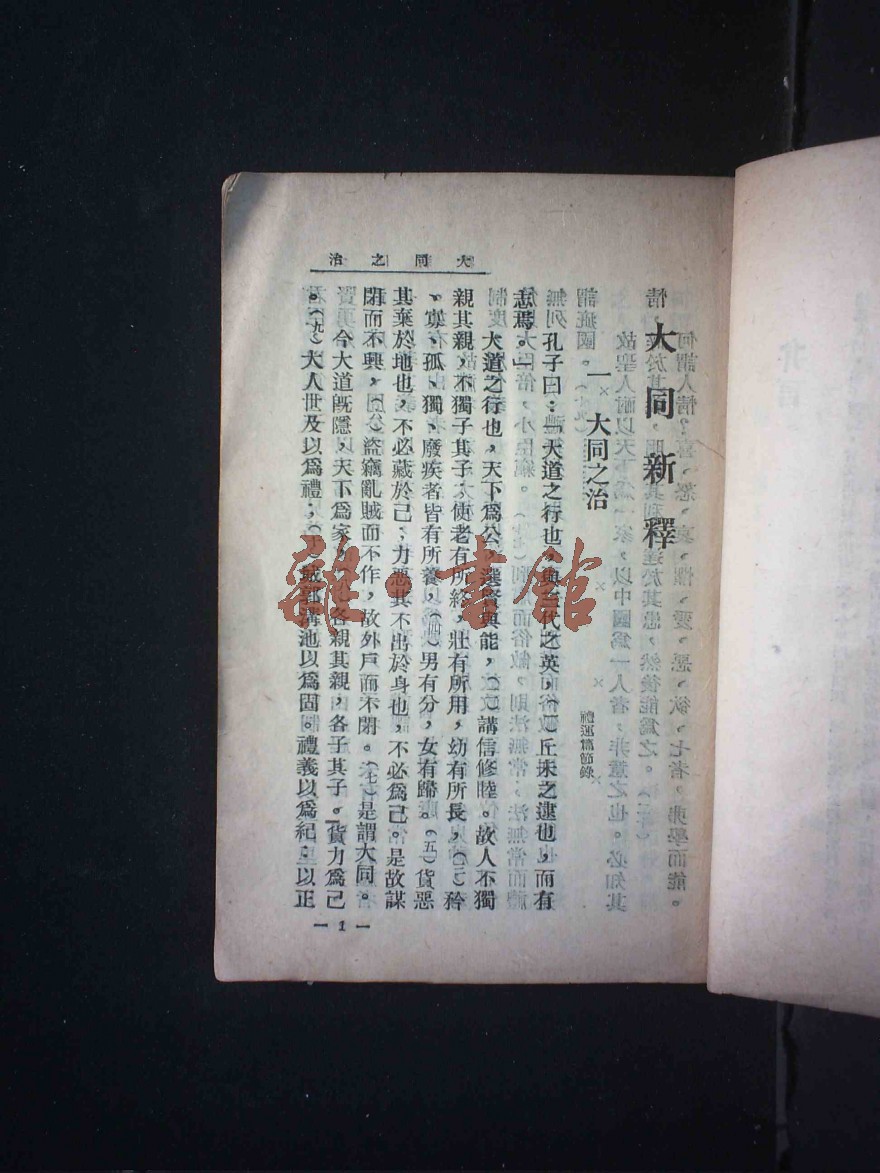 大同新釋
一 大同之治
禮運篇節錄
孔子曰：「大道之行也，與三代之英，（一）丘未之逮也，而有
志焉。」
大道之行也，天下爲公，選賢與能，（二）講信修睦。故人不獨
親其親，不獨子其子；使老有所終，壯有所用，幼有所長，（三）矜
、寡、孤、獨、廢疾者皆有所養，（四）男有分，女有歸。（五）貨惡
其棄於地也，不必藏於己；力惡其不出於身也，不必爲己。是故謀
閉而不興，（六）盜竊亂賊而不作，故外戶而不閉。（七）是謂大同。
今大道旣隱，天下爲家，（八）各親其親，各子其子。貨力爲己
。（九）大人世及以爲禮；（十）城郭溝池以爲固。禮義以爲紀；以正
大同之治
— 1 —
雜·書館